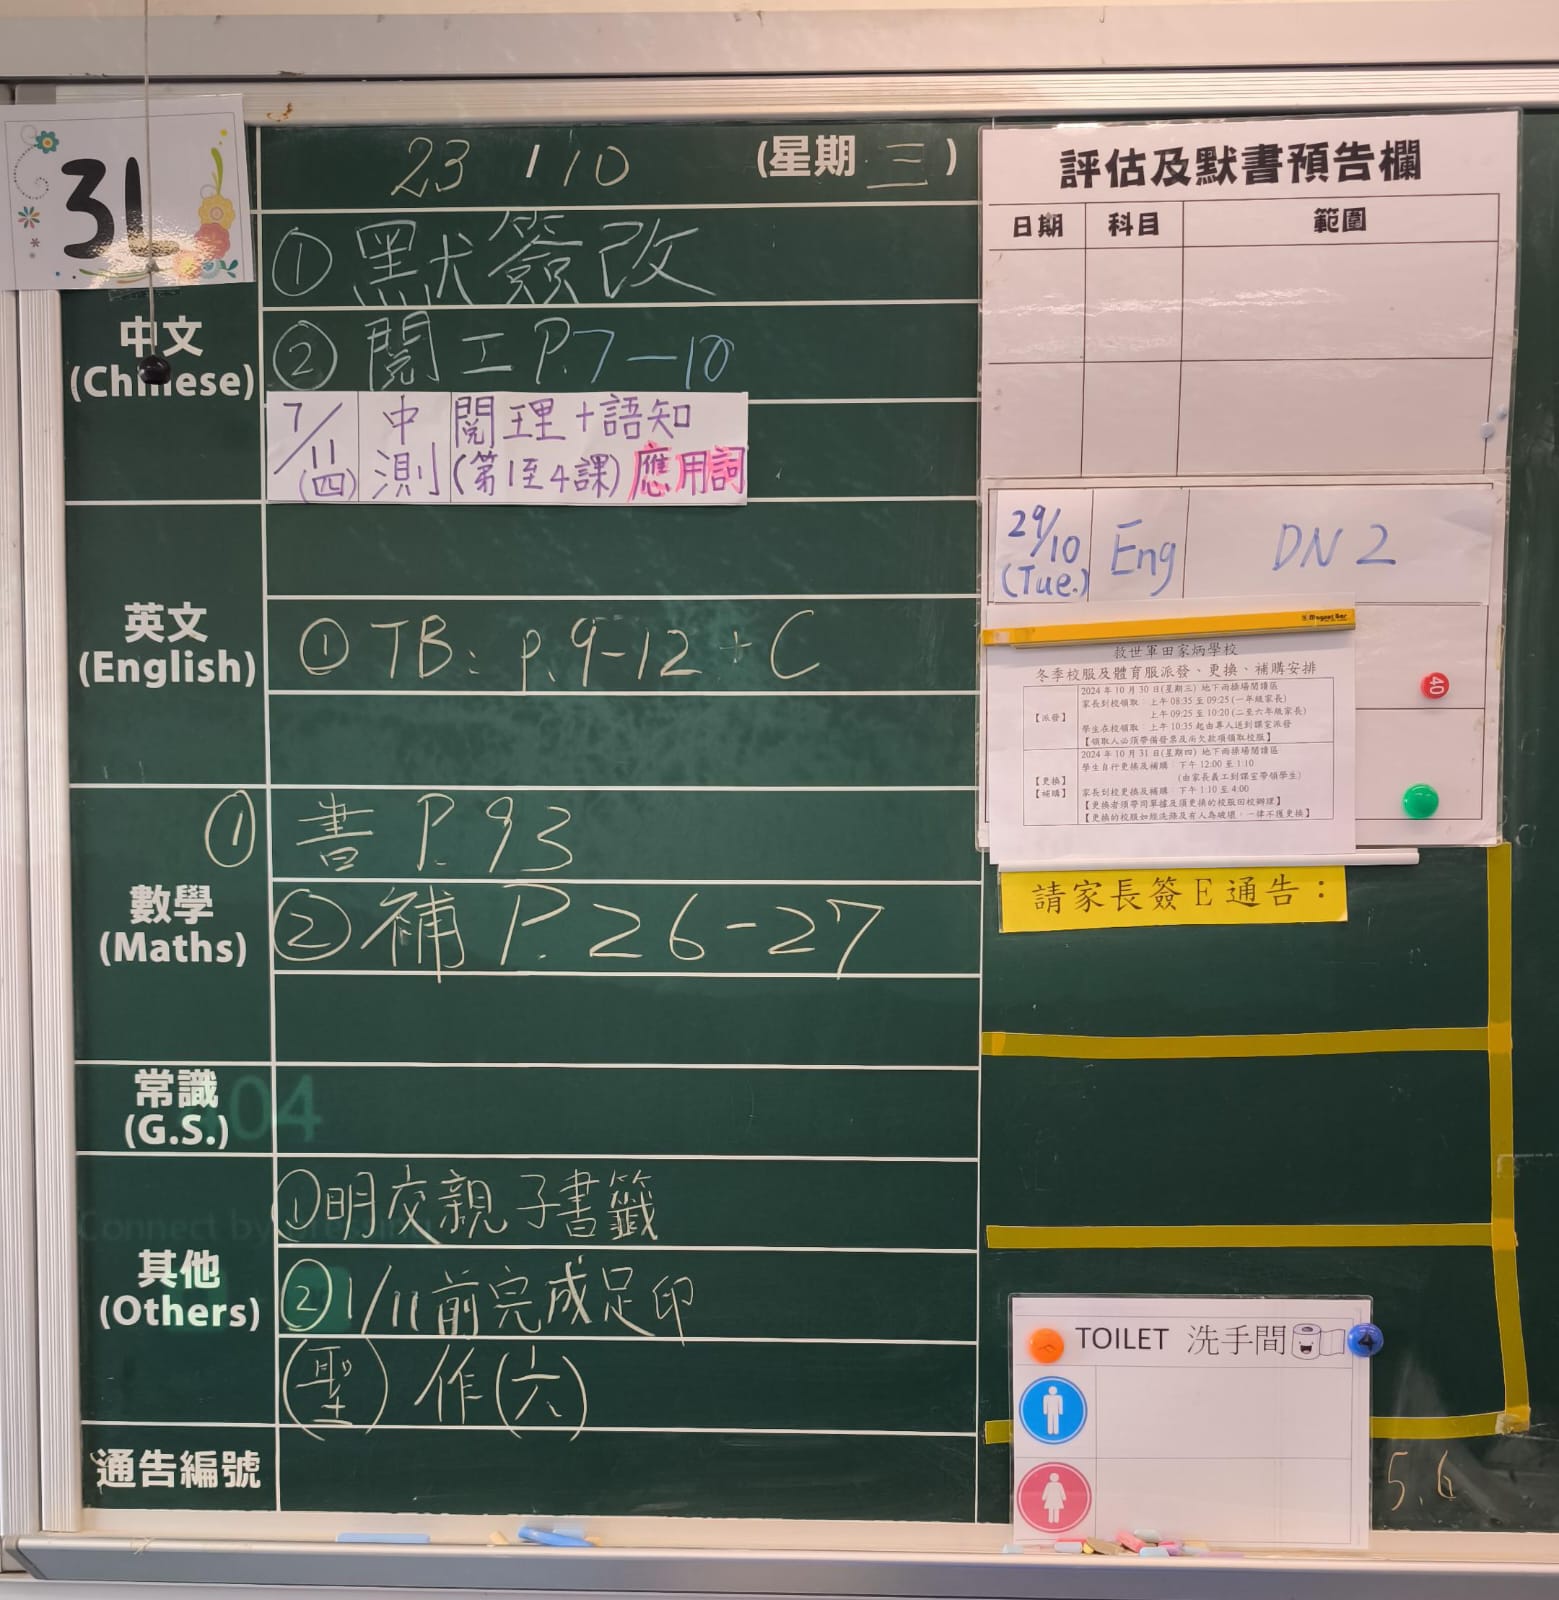 3L
23 / 10 (星期三)
中文
(Chinese)
① 默簽改
② 閱工 P.7—10
7/11 (四) 中測 閱理+語知
(第1至4課) 應用詞
英文
(English)
① TB: p.9-12 + C
數學
(Maths)
① 書 P.93
② 補 P.26-27
常識
(G.S.)
其他
(Others)
① 明交親子書籤
② 1/11前完成足印
(聖) 作(六)
通告編號
評估及默書預告欄
日期 科目 範圍
29/10 (Tue.) Eng DN 2
Magnet Bar
救世軍田家炳學校
冬季校服及體育服派發、更換、補購安排
【派發】
2024 年 10 月 30 日(星期三) 地下雨操場閱讀區
家長到校領取：上午 08:35 至 09:25 (一年級家長)
上午 09:25 至 10:20 (二至六年級家長)
學生在校領取：上午 10:35 起由專人送到課室派發
【領取人必須帶備發票及尚欠款項領取校服】
【更換】
【補購】
2024 年 10 月 31 日(星期四) 地下雨操場閱讀區
學生自行更換及補購：下午 12:00 至 1:10
(由家長義工到課室帶領學生)
家長到校更換及補購：下午 1:10 至 4:00
【更換者須帶同單據及須更換的校服回校辦理】
【更換的校服如經洗滌及有人為破壞，一律不獲更換】
40
請家長簽E通告：
TOILET 洗手間
5.6